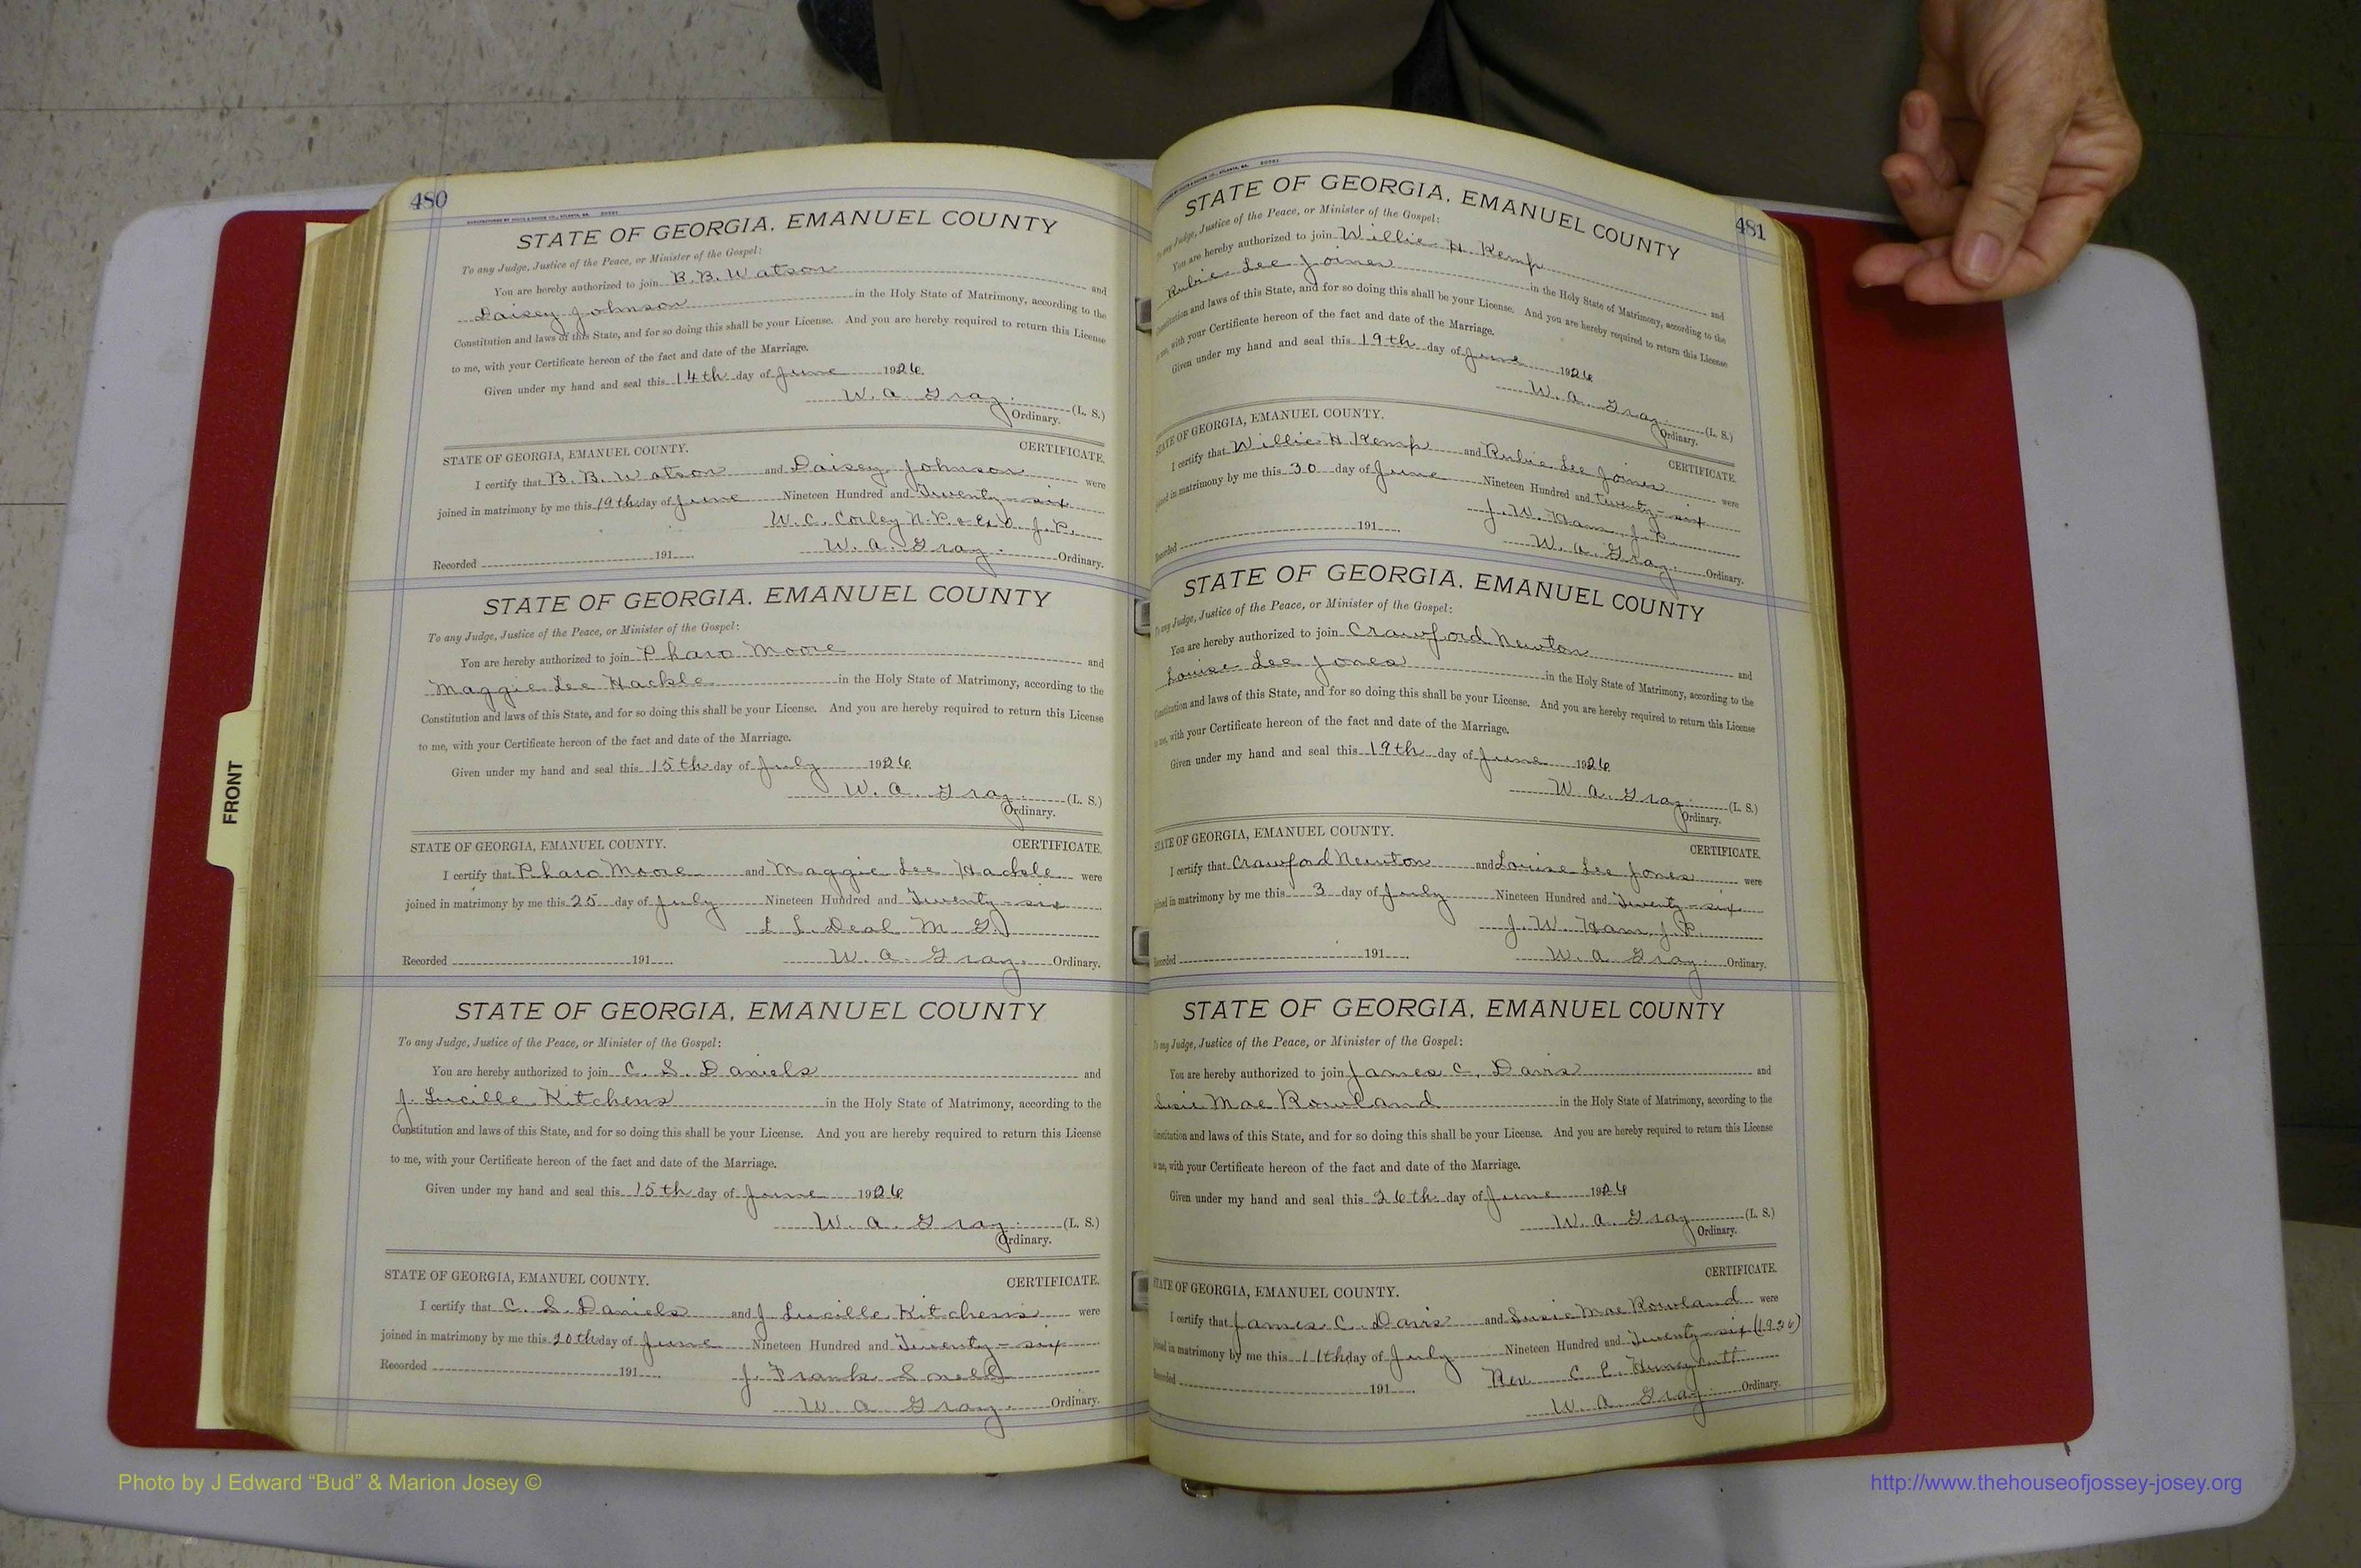 480
STATE OF GEORGIA, EMANUEL COUNTY
To any Judge, Justice of the Peace, or Minister of the Gospel:
You are hereby authorized to join B. B. Watson and
Daisey Johnson in the Holy State of Matrimony, according to the
Constitution and laws of this State, and for so doing this shall be your License. And you are hereby required to return this License
to me, with your Certificate hereon of the fact and date of the Marriage.
Given under my hand and seal this 14th day of June 1926.
W. A. Gray. (L. S.)
Ordinary.
STATE OF GEORGIA, EMANUEL COUNTY. CERTIFICATE.
I certify that B. B. Watson and Daisey Johnson were
joined in matrimony by me this 19th day of June Nineteen Hundred and Twenty-six
W. C. Corley N. P. & Ex O. J. P.
Recorded 191 W. A. Gray. Ordinary.
STATE OF GEORGIA, EMANUEL COUNTY
To any Judge, Justice of the Peace, or Minister of the Gospel:
You are hereby authorized to join Pharo Moore and
Maggie Lee Hackle in the Holy State of Matrimony, according to the
Constitution and laws of this State, and for so doing this shall be your License. And you are hereby required to return this License
to me, with your Certificate hereon of the fact and date of the Marriage.
Given under my hand and seal this 15th day of July 1926.
W. A. Gray. (L. S.)
Ordinary.
STATE OF GEORGIA, EMANUEL COUNTY. CERTIFICATE.
I certify that Pharo Moore and Maggie Lee Hackle were
joined in matrimony by me this 25 day of July Nineteen Hundred and Twenty-six
L. L. Deal M. G.
Recorded 191 W. A. Gray. Ordinary.
STATE OF GEORGIA, EMANUEL COUNTY
To any Judge, Justice of the Peace, or Minister of the Gospel:
You are hereby authorized to join C. S. Daniels and
J. Lucille Kitchens in the Holy State of Matrimony, according to the
Constitution and laws of this State, and for so doing this shall be your License. And you are hereby required to return this License
to me, with your Certificate hereon of the fact and date of the Marriage.
Given under my hand and seal this 15th day of June 1926
W. A. Gray. (L. S.)
Ordinary.
STATE OF GEORGIA, EMANUEL COUNTY. CERTIFICATE.
I certify that C. S. Daniels and J. Lucille Kitchens were
joined in matrimony by me this 20th day of June Nineteen Hundred and Twenty-six
Recorded 191 J. Frank Snell
W. A. Gray. Ordinary.
481
STATE OF GEORGIA, EMANUEL COUNTY
To any Judge, Justice of the Peace, or Minister of the Gospel:
You are hereby authorized to join Willie H. Kemp and
Rubie Lee Joiner in the Holy State of Matrimony, according to the
Constitution and laws of this State, and for so doing this shall be your License. And you are hereby required to return this License
to me, with your Certificate hereon of the fact and date of the Marriage.
Given under my hand and seal this 19th day of June 1926
W. A. Gray. (L. S.)
Ordinary.
STATE OF GEORGIA, EMANUEL COUNTY. CERTIFICATE.
I certify that Willie H. Kemp and Rubie Lee Joiner were
joined in matrimony by me this 30 day of June Nineteen Hundred and twenty-six
J. W. Ham J. P.
Recorded 191 W. A. Gray. Ordinary.
STATE OF GEORGIA, EMANUEL COUNTY
To any Judge, Justice of the Peace, or Minister of the Gospel:
You are hereby authorized to join Crawford Newton and
Louise Lee Jones in the Holy State of Matrimony, according to the
Constitution and laws of this State, and for so doing this shall be your License. And you are hereby required to return this License
to me, with your Certificate hereon of the fact and date of the Marriage.
Given under my hand and seal this 19th day of June 1926.
W. A. Gray. (L. S.)
Ordinary.
STATE OF GEORGIA, EMANUEL COUNTY. CERTIFICATE.
I certify that Crawford Newton and Louise Lee Jones were
joined in matrimony by me this 3 day of July Nineteen Hundred and Twenty-six
J. W. Ham, J. P.
Recorded 191 W. A. Gray. Ordinary.
STATE OF GEORGIA, EMANUEL COUNTY
To any Judge, Justice of the Peace, or Minister of the Gospel:
You are hereby authorized to join James C. Davis and
Susie Mae Rowland in the Holy State of Matrimony, according to the
Constitution and laws of this State, and for so doing this shall be your License. And you are hereby required to return this License
to me, with your Certificate hereon of the fact and date of the Marriage.
Given under my hand and seal this 26th day of June 1926
W. A. Gray (L. S.)
Ordinary.
CERTIFICATE.
STATE OF GEORGIA, EMANUEL COUNTY.
I certify that James C. Davis and Susie Mae Rowland were
joined in matrimony by me this 11th day of July Nineteen Hundred and Twenty-six (1926)
Recorded 191 Rev C. E.
W. A. Gray. Ordinary.
FRONT
Photo by J Edward “Bud” & Marion Josey ©
http://www.thehouseofjossey-josey.org